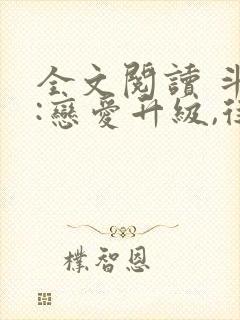 全文閱讀 斗
:戀愛升級,往
樸智恩